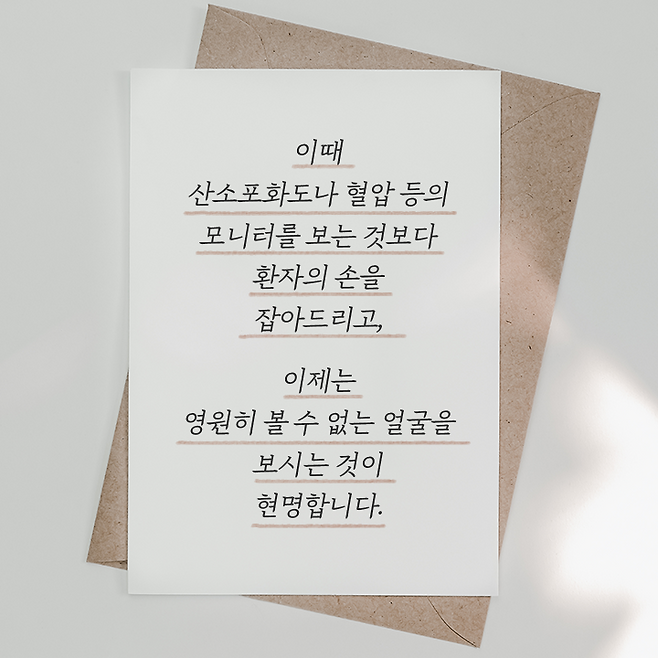 이때
산소포화도나 혈압 등의
모니터를 보는 것보다
환자의 손을
잡아드리고,
이제는
영원히 볼 수 없는 얼굴을
보시는 것이
현명합니다.